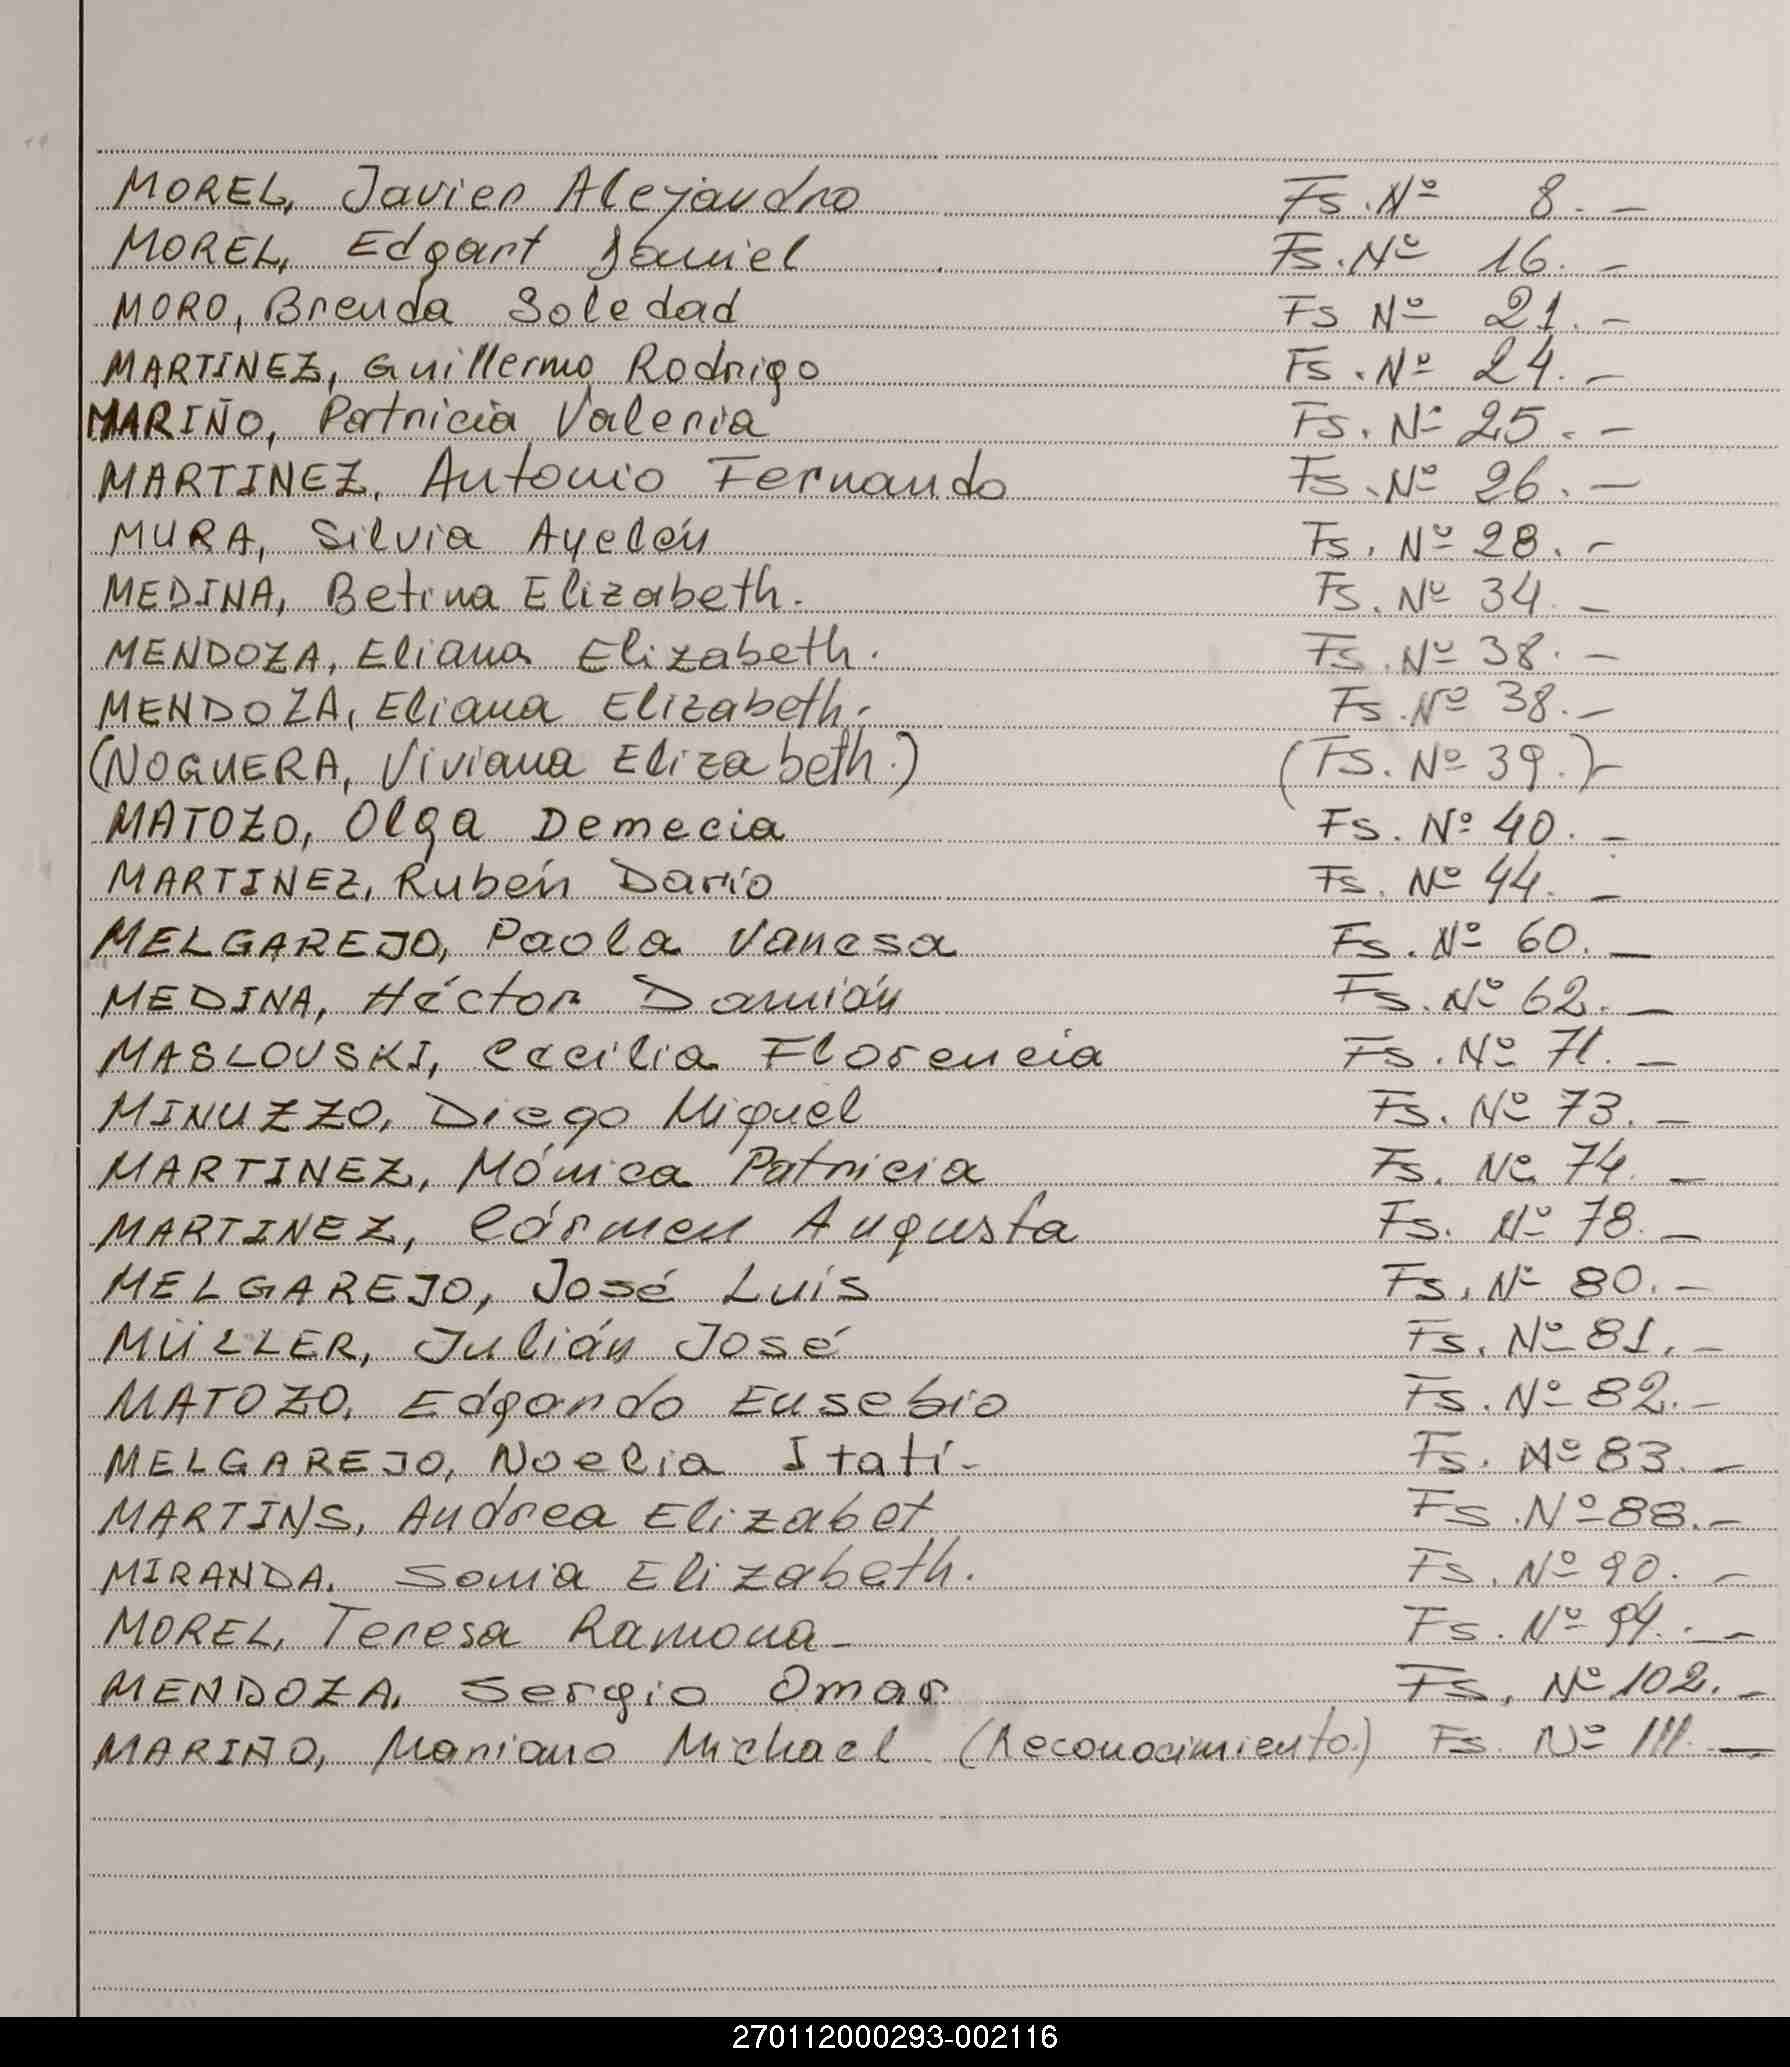 MOREL, Javier Alejandro Fs. Nº 8. -
MOREL, Edgart Daniel Fs. Nº 16. -
MORO, Brenda Soledad Fs Nº 21. -
MARTINEZ, Guillermo Rodrigo Fs. Nº 24. -
MARIÑO, Patricia Valeria Fs. Nº 25. -
MARTINEZ, Antonio Fernando Fs. Nº 26. -
MURA, Silvia Ayelén Fs. Nº 28. -
MEDINA, Betina Elizabeth. Fs. Nº 34. -
MENDOZA, Eliana Elizabeth. Fs. Nº 38. -
MENDOZA, Eliana Elizabeth. Fs. Nº 38. -
(NOGUERA, Viviana Elizabeth.) (Fs. Nº 39.)-
MATOZO, Olga Demecia Fs. Nº 40. -
MARTINEZ, Rubén Darío Fs. Nº 44. -
MELGAREJO, Paola Vanesa Fs. Nº 60. -
MEDINA, Héctor Damián Fs. Nº 62. -
MASLOVSKI, Cecilia Florencia Fs. Nº 71. -
MINUZZO, Diego Miguel Fs. Nº 73. -
MARTINEZ, Mónica Patricia Fs. Nº 74. -
MARTINEZ, Cármen Augusta Fs. Nº 78. -
MELGAREJO, José Luis Fs. Nº 80. -
MÜLLER, Julián José Fs. Nº 81. -
MATOZO, Edgardo Eusebio Fs. Nº 82. -
MELGAREJO, Noelia Itatí- Fs. Nº 83. -
MARTINS, Andrea Elizabet Fs. Nº 88. -
MIRANDA. Sonia Elizabeth. Fs. Nº 90. -
MOREL, Teresa Ramona- Fs. Nº 94. -
MENDOZA, Sergio Omar Fs. Nº 102. -
MARIÑO, Mariano Michael (Reconocimiento.) Fs. Nº 111. -
270112000293-002116